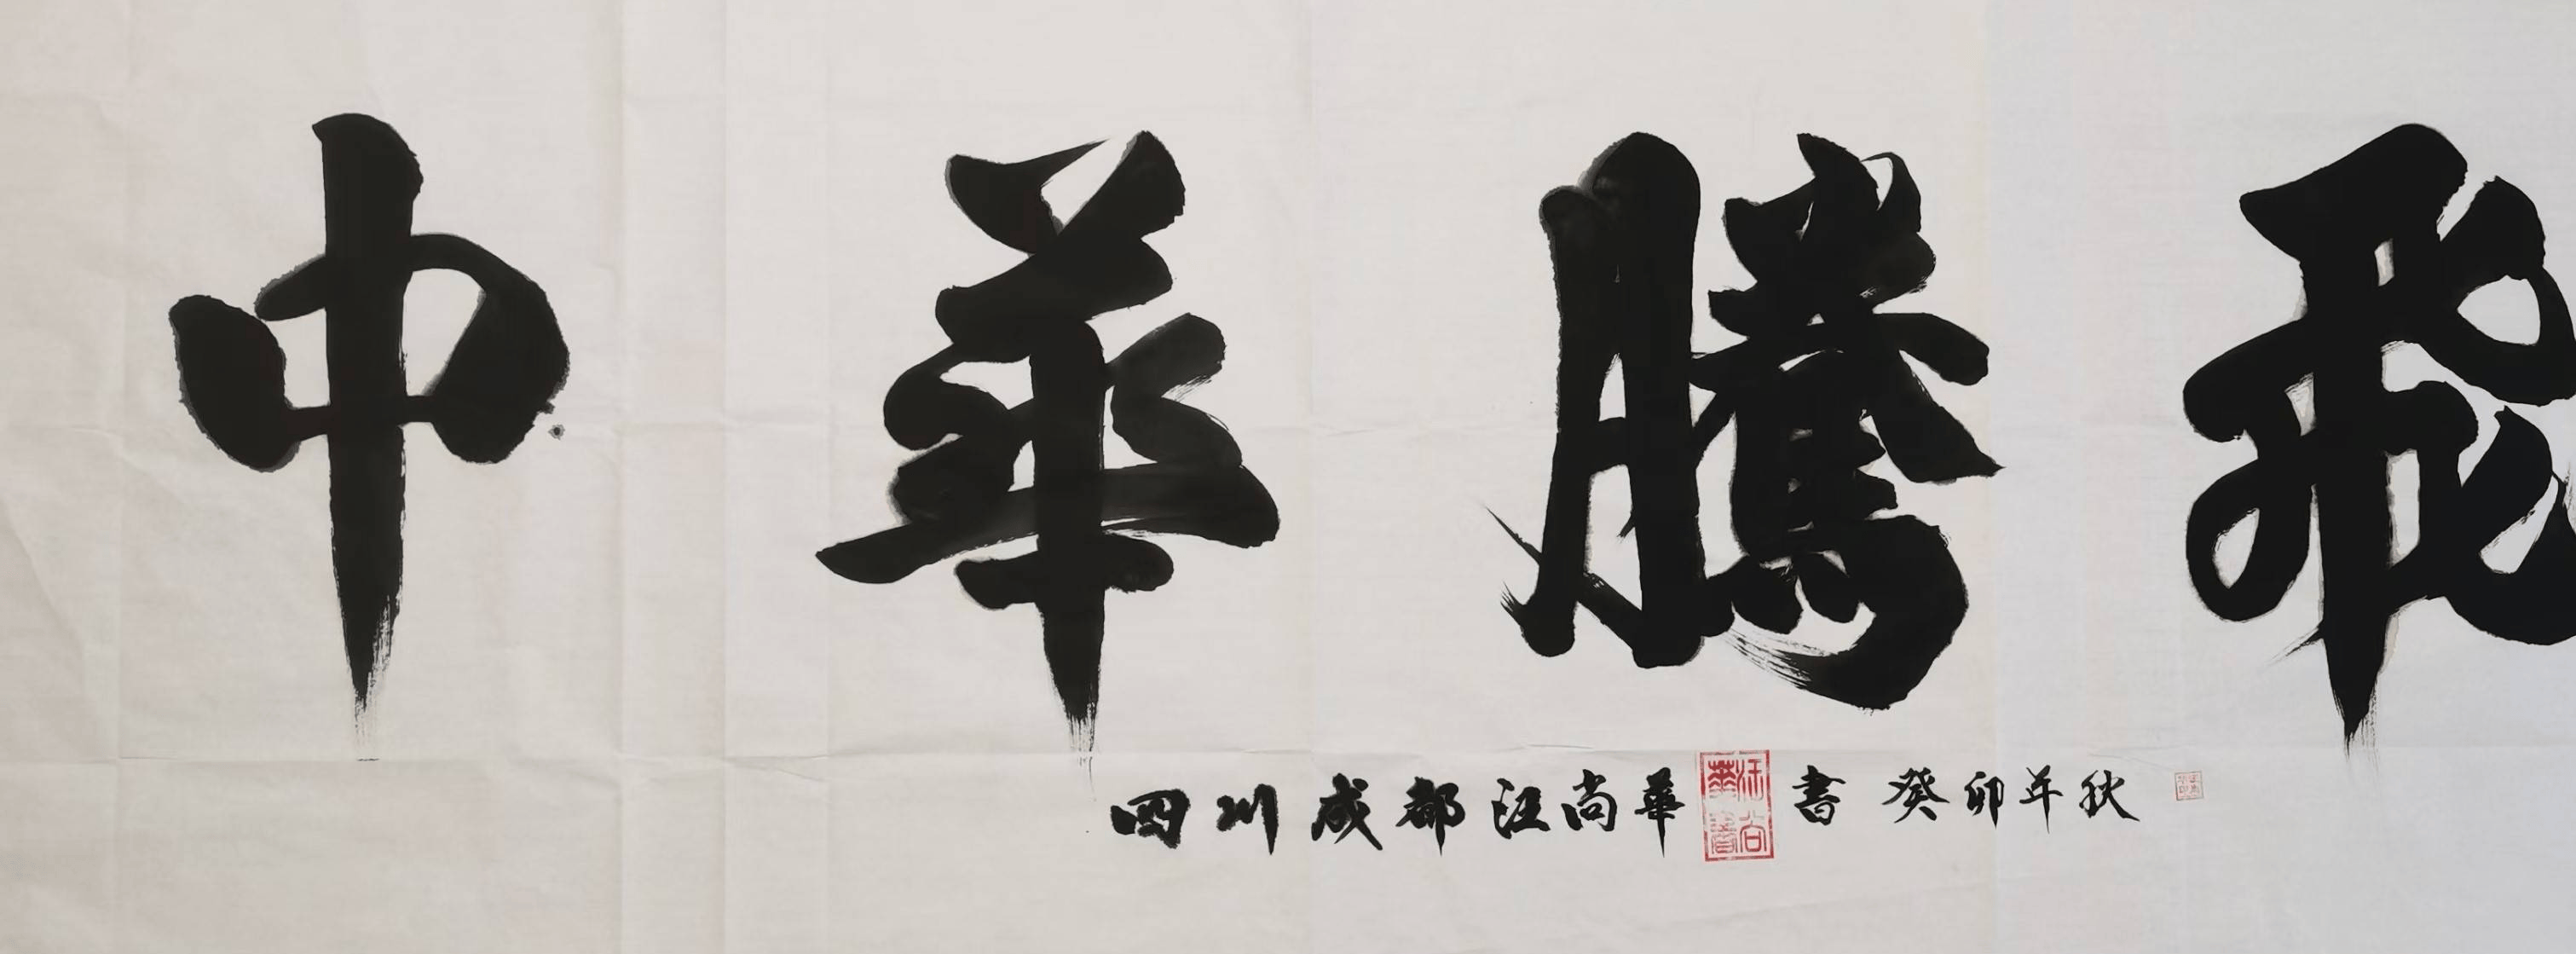 中華騰飛
四川成都汪尚華書 癸卯年秋
汪尚華書